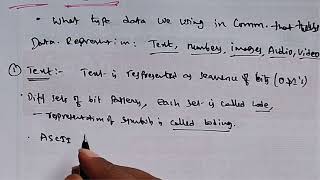 • What type data we using in Comm. that
Data Represention: Text, numbers, images, Audio, Video
① Text:- Text is respresented as sequence of bits (0 & 1's)
• Diff sets of bit Patterns, Each set is called Code,
- representation of symbols is called Coding.
• ASCII